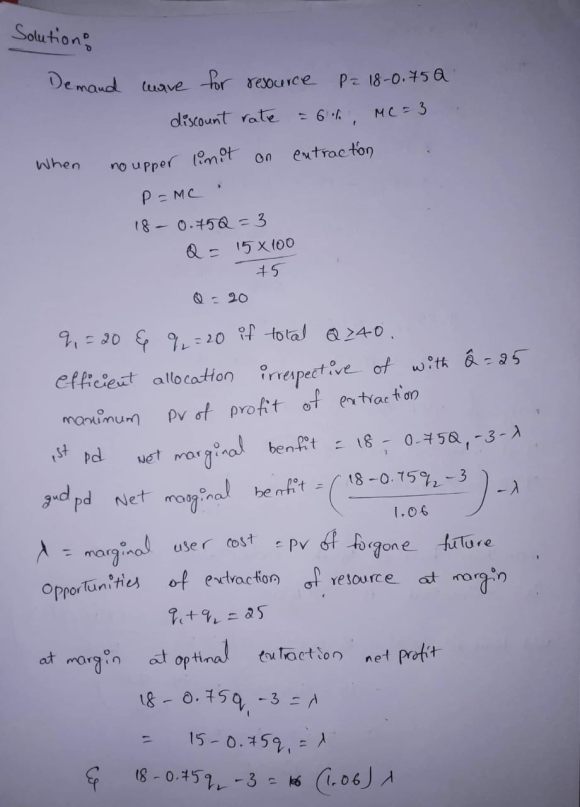 Solution:
Demand curve for resource P = 18-0.75Q
discount rate = 6%, MC = 3
When no upper limit on extraction
P = MC
18 - 0.75Q = 3
Q = 15 X 100
75
Q = 20
q₁ = 20 & q₂ = 20 if total Q ≥ 40.
efficient allocation irrespective of with Q̂ = 25
maximum PV of profit of extraction
1st pd Net marginal benfit = 18 - 0.75Q₁ - 3 - λ
2nd pd Net marginal benfit = (18 - 0.75q₂ - 3
1.06) - λ
λ = marginal user cost = PV of forgone future
opportunities of extraction of resource at margin
q₁ + q₂ = 25
at margin at optimal extraction net profit
18 - 0.75q₁ - 3 = λ
= 15 - 0.75q₁ = λ
& 18 - 0.75q₂ - 3 = (1.06) λ